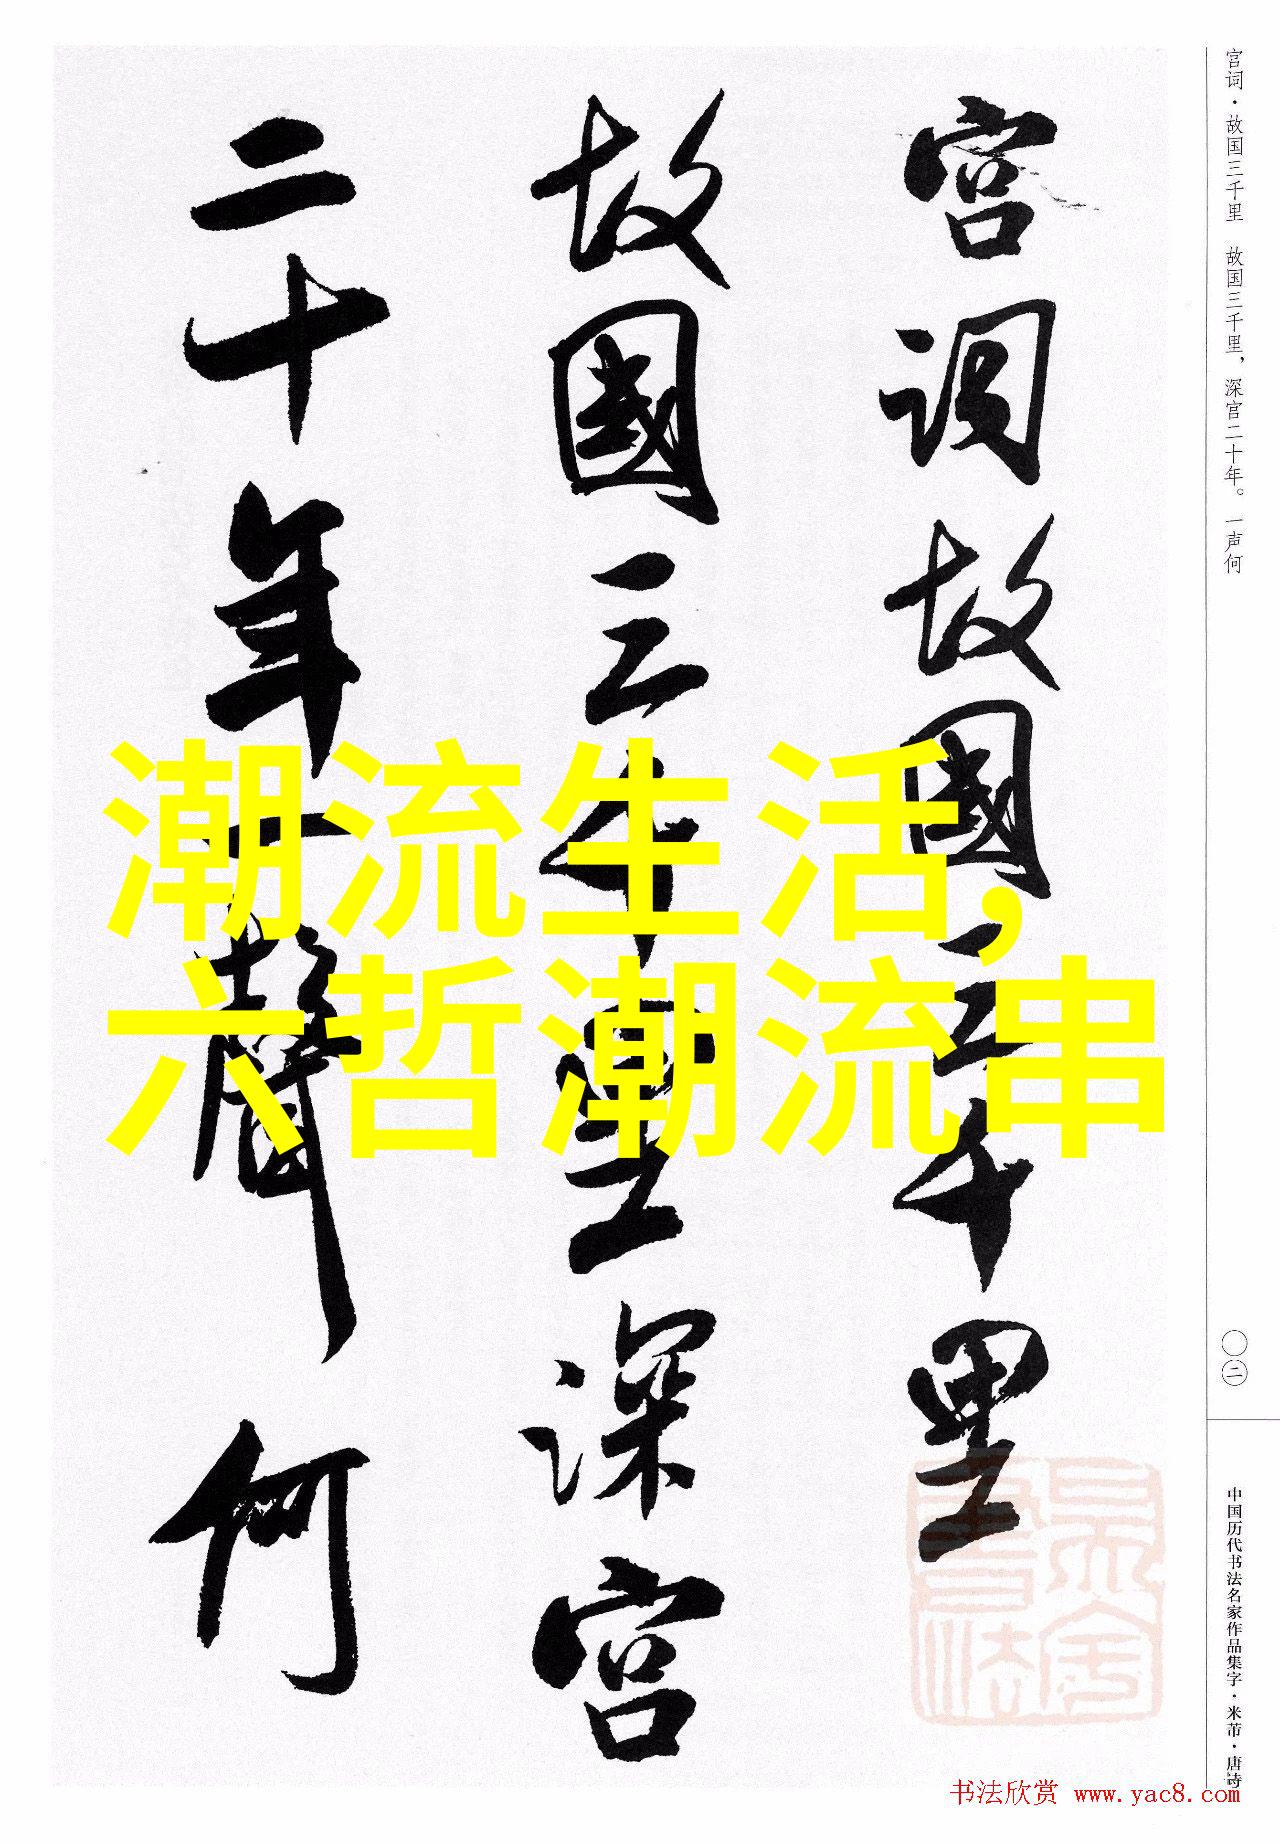 宫词·故国三千里 故国三千里，深宫二十年。一声何
宫词故國三千里
故國三千里深宫
二十年一聲何
潮流生活，
六哲潮流串
〇二
中国历代书法名家作品集字·米芾·唐诗
书法欣赏 www.yac8.com